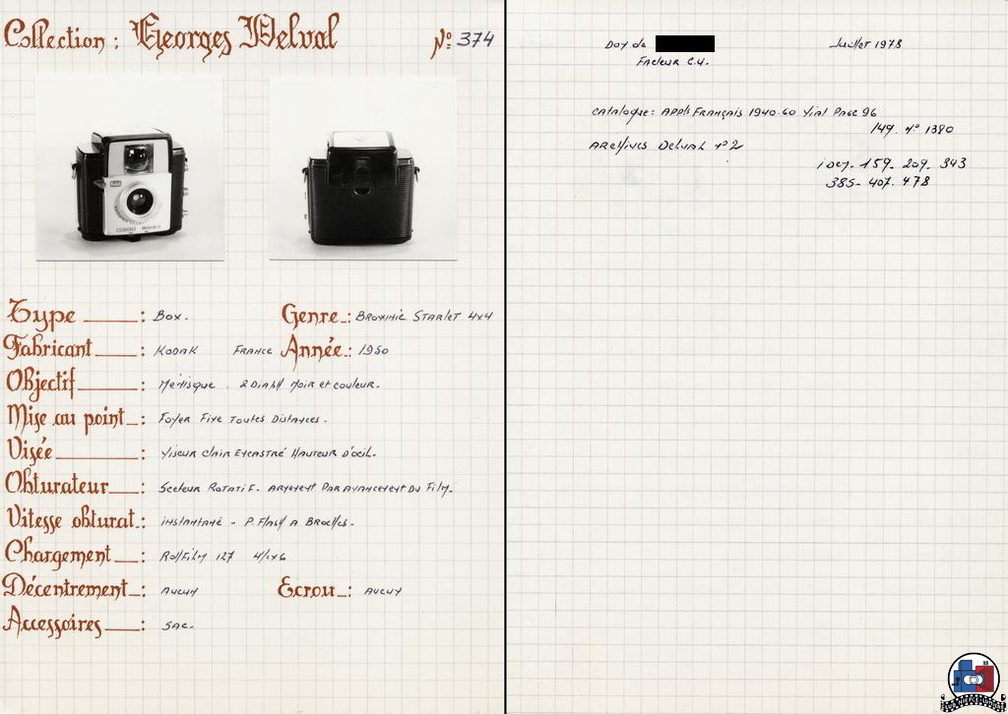 Collection : Georges Delval
N°: 374
Type : Box.
Genre : Brownie Starlet 4x4
Fabricant : Kodak France
Année : 1950
Objectif : Ménisque . 2 Diaph Noir et couleur.
Mise au point : Foyer Fixe Toutes Distances.
Visée : Viseur clair Encastré Hauteur d'œil.
Obturateur : Secteur Rotatif. Armement Par avancement Du Film.
Vitesse obturat : instantané - P. Flash A Broches.
Chargement : Rollfilm 127
Décentrement : Aucun
Ecrou : Aucun
Accessoires : Sac.
Don de
Juillet 1978
Facteur C.U.
Catalogue: Appls Français 1940-60 Vial Page 96
149. N° 1380
Archives Delval N° 2
159. 209. 343
385. 407. 478